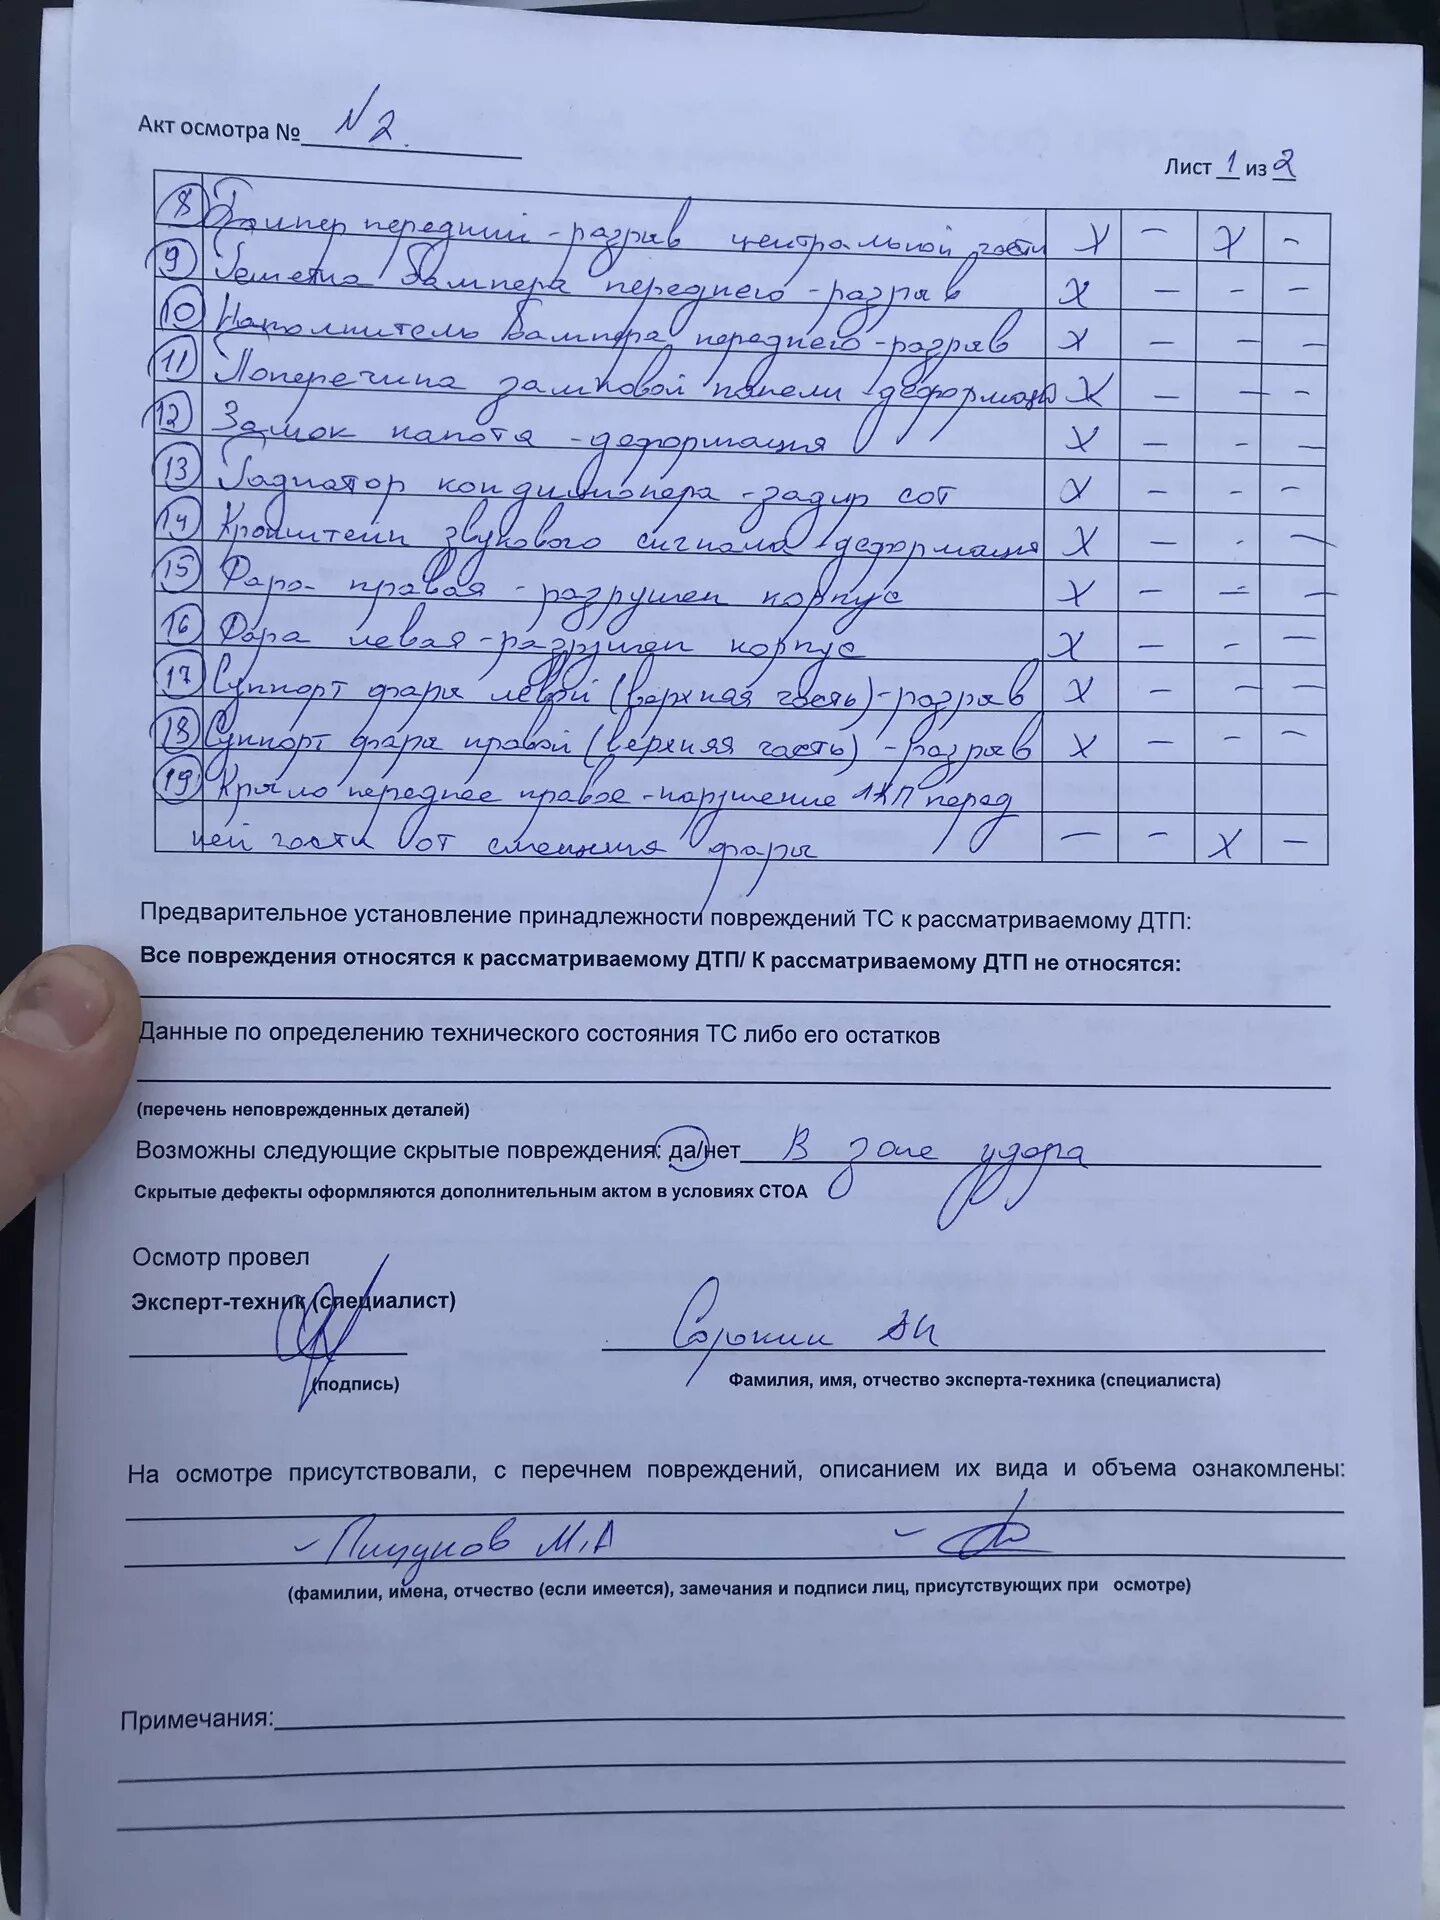 Акт осмотра № N2.
Лист 1 из 2
8 Бампер передний - разрыв центральной части X — X -
9 Решетка бампера переднего - разрыв X — - -
10 Наполнитель бампера переднего - разрыв X — — —
11 Поперечина замковой панели - деформация X — — -
12 Замок капота - деформация X — - -
13 Радиатор кондиционера - задир сот X — - —
14 Кронштейн звукового сигнала - деформация X — - —
15 Фара правая - разрушен корпус X — — —
16 Фара левая - разрушен корпус X — - —
17 Суппорт фары левой (верхняя часть) - разрыв X — — —
18 Суппорт фары правой (верхняя часть) - разрыв X — - —
19 Крыло переднее правое - нарушение ЛКП перед
ней части от смещения фары — - X —
Предварительное установление принадлежности повреждений ТС к рассматриваемому ДТП:
Все повреждения относятся к рассматриваемому ДТП/ К рассматриваемому ДТП не относятся:
Данные по определению технического состояния ТС либо его остатков
(перечень неповрежденных деталей)
Возможны следующие скрытые повреждения: да/нет В зоне удара
Скрытые дефекты оформляются дополнительным актом в условиях СТОА
Осмотр провел
Эксперт-техник (специалист)
Сорокин
(подпись)
Фамилия, имя, отчество эксперта-техника (специалиста)
На осмотре присутствовали, с перечнем повреждений, описанием их вида и объема ознакомлены:
М.А
(фамилии, имена, отчество (если имеется), замечания и подписи лиц, присутствующих при осмотре)
Примечания: